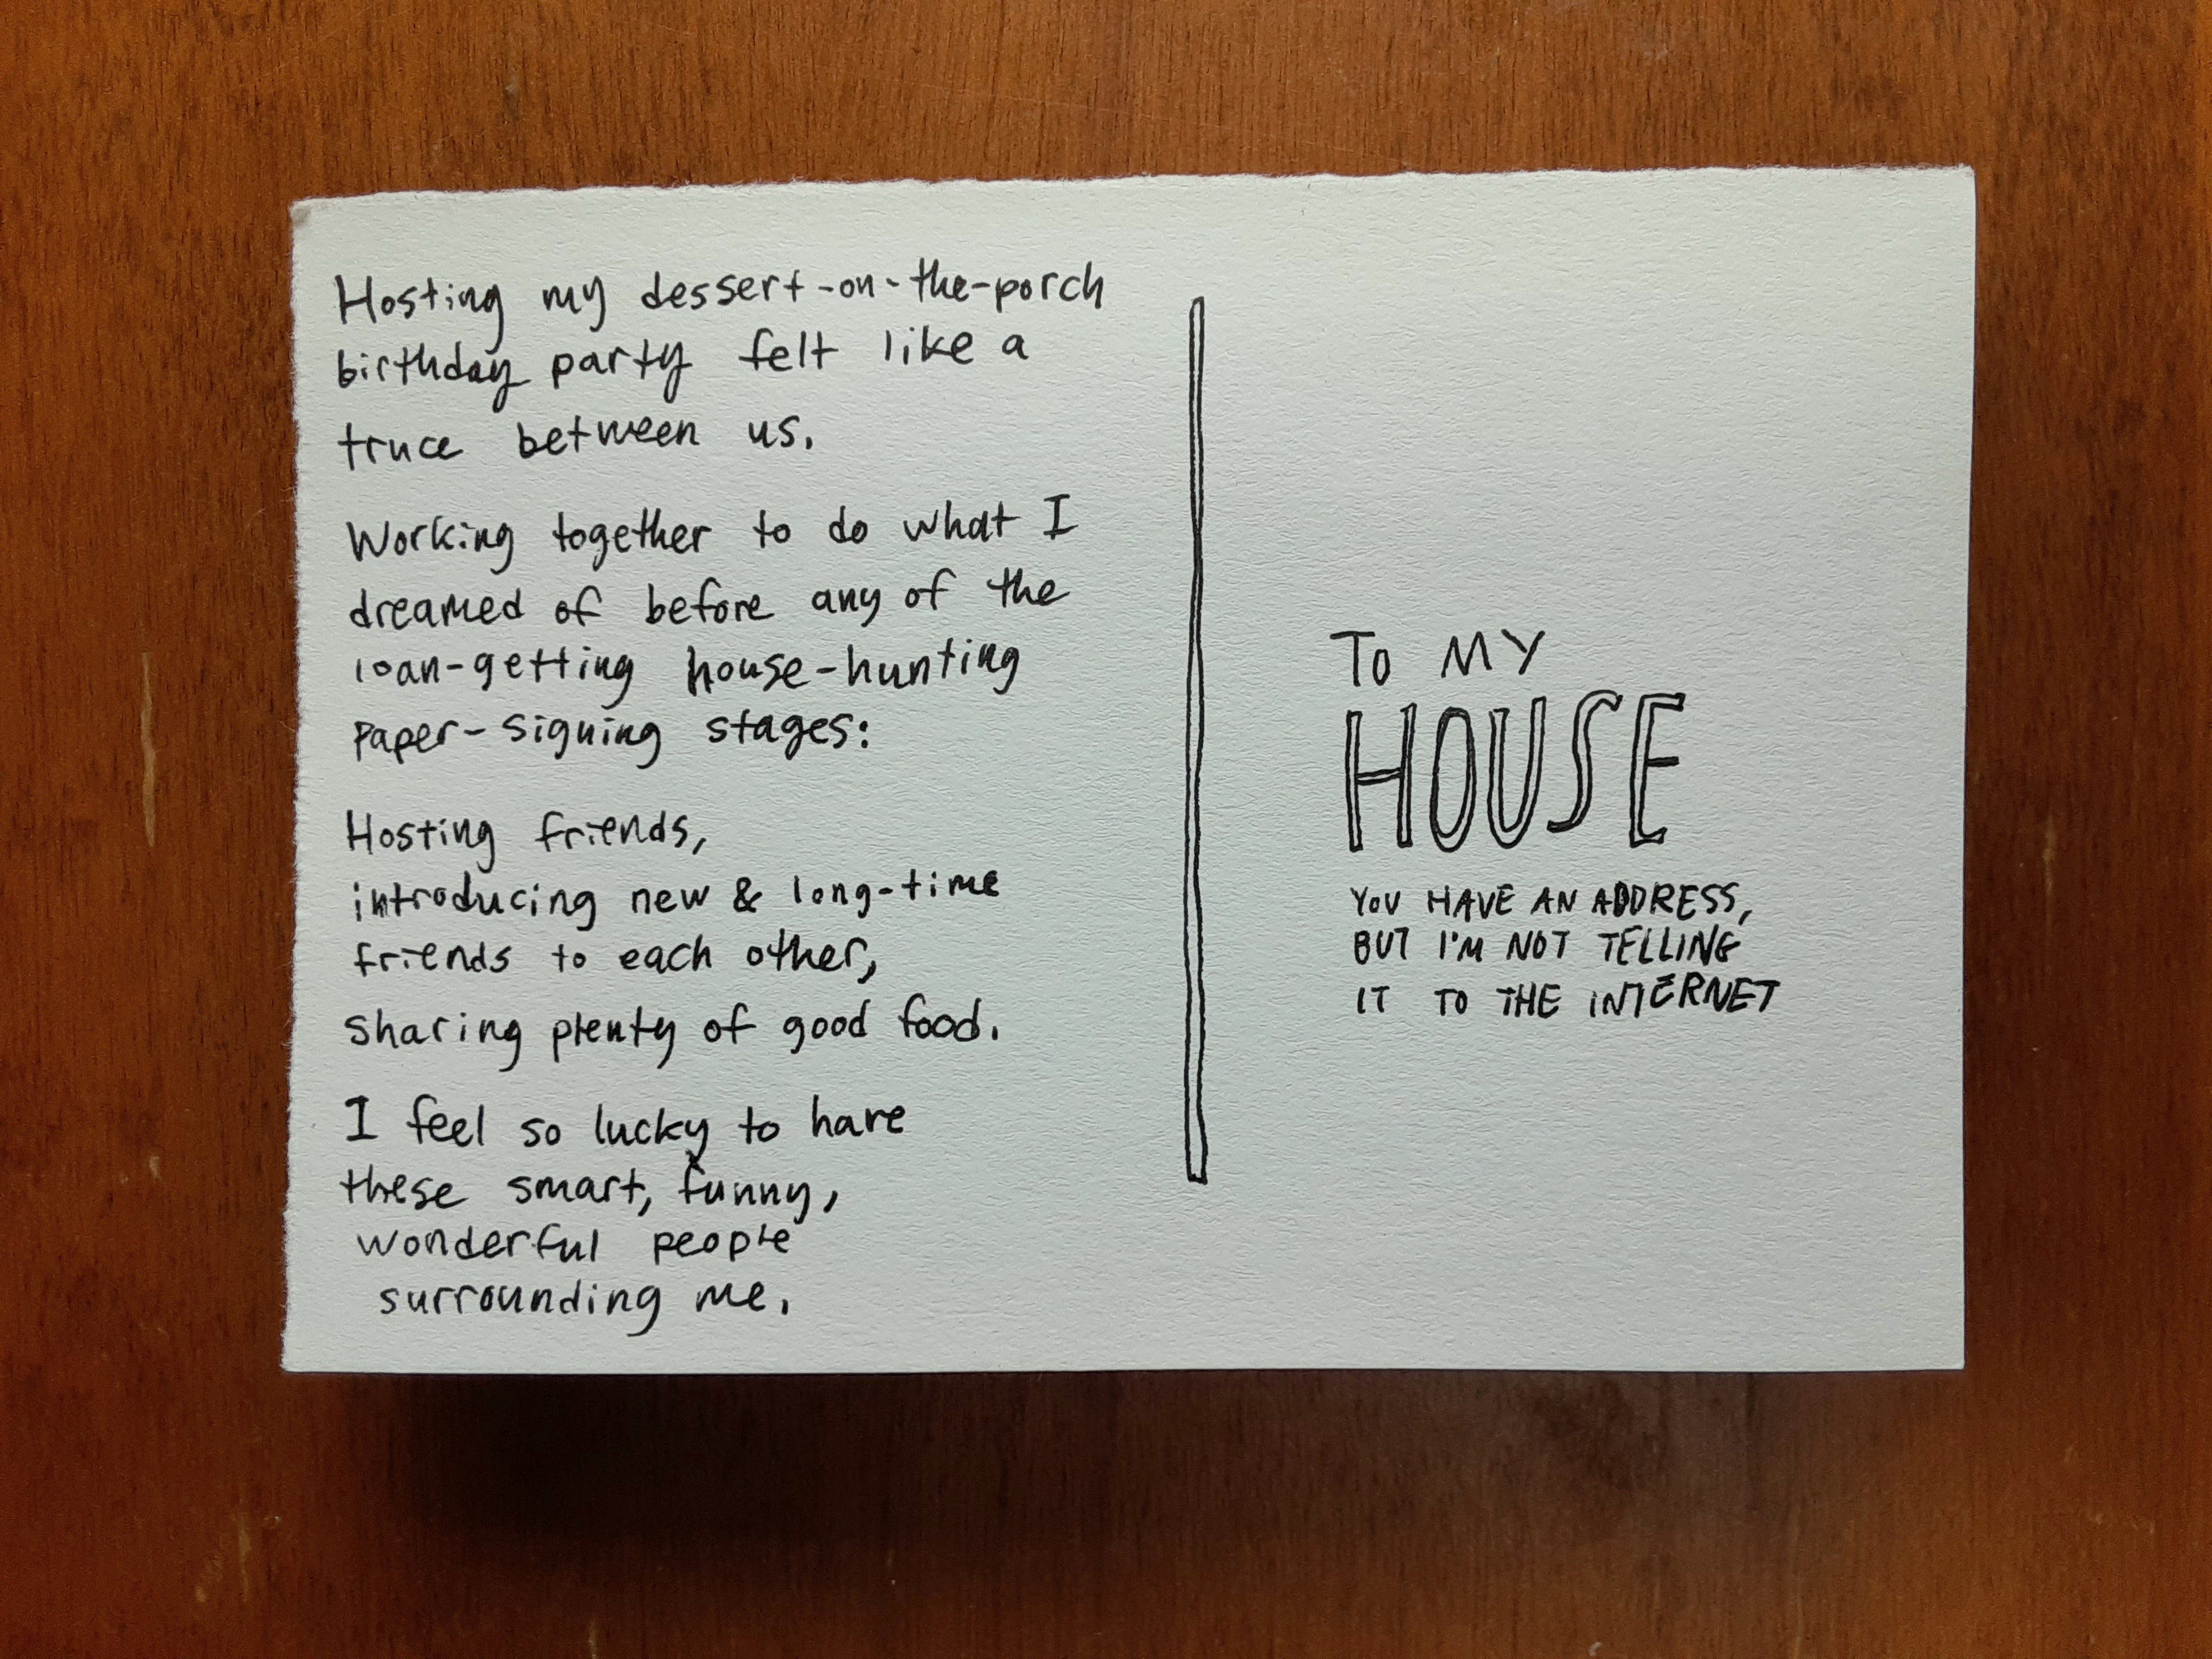 Hosting my dessert-on-the-porch
birthday party felt like a
truce between us.
Working together to do what I
dreamed of before any of the
loan-getting house-hunting
paper-signing stages:
Hosting friends,
introducing new & long-time
friends to each other,
sharing plenty of good food.
I feel so lucky to have
these smart, funny,
wonderful people
surrounding me.
TO MY
HOUSE
YOU HAVE AN ADDRESS,
BUT I'M NOT TELLING
IT TO THE INTERNET